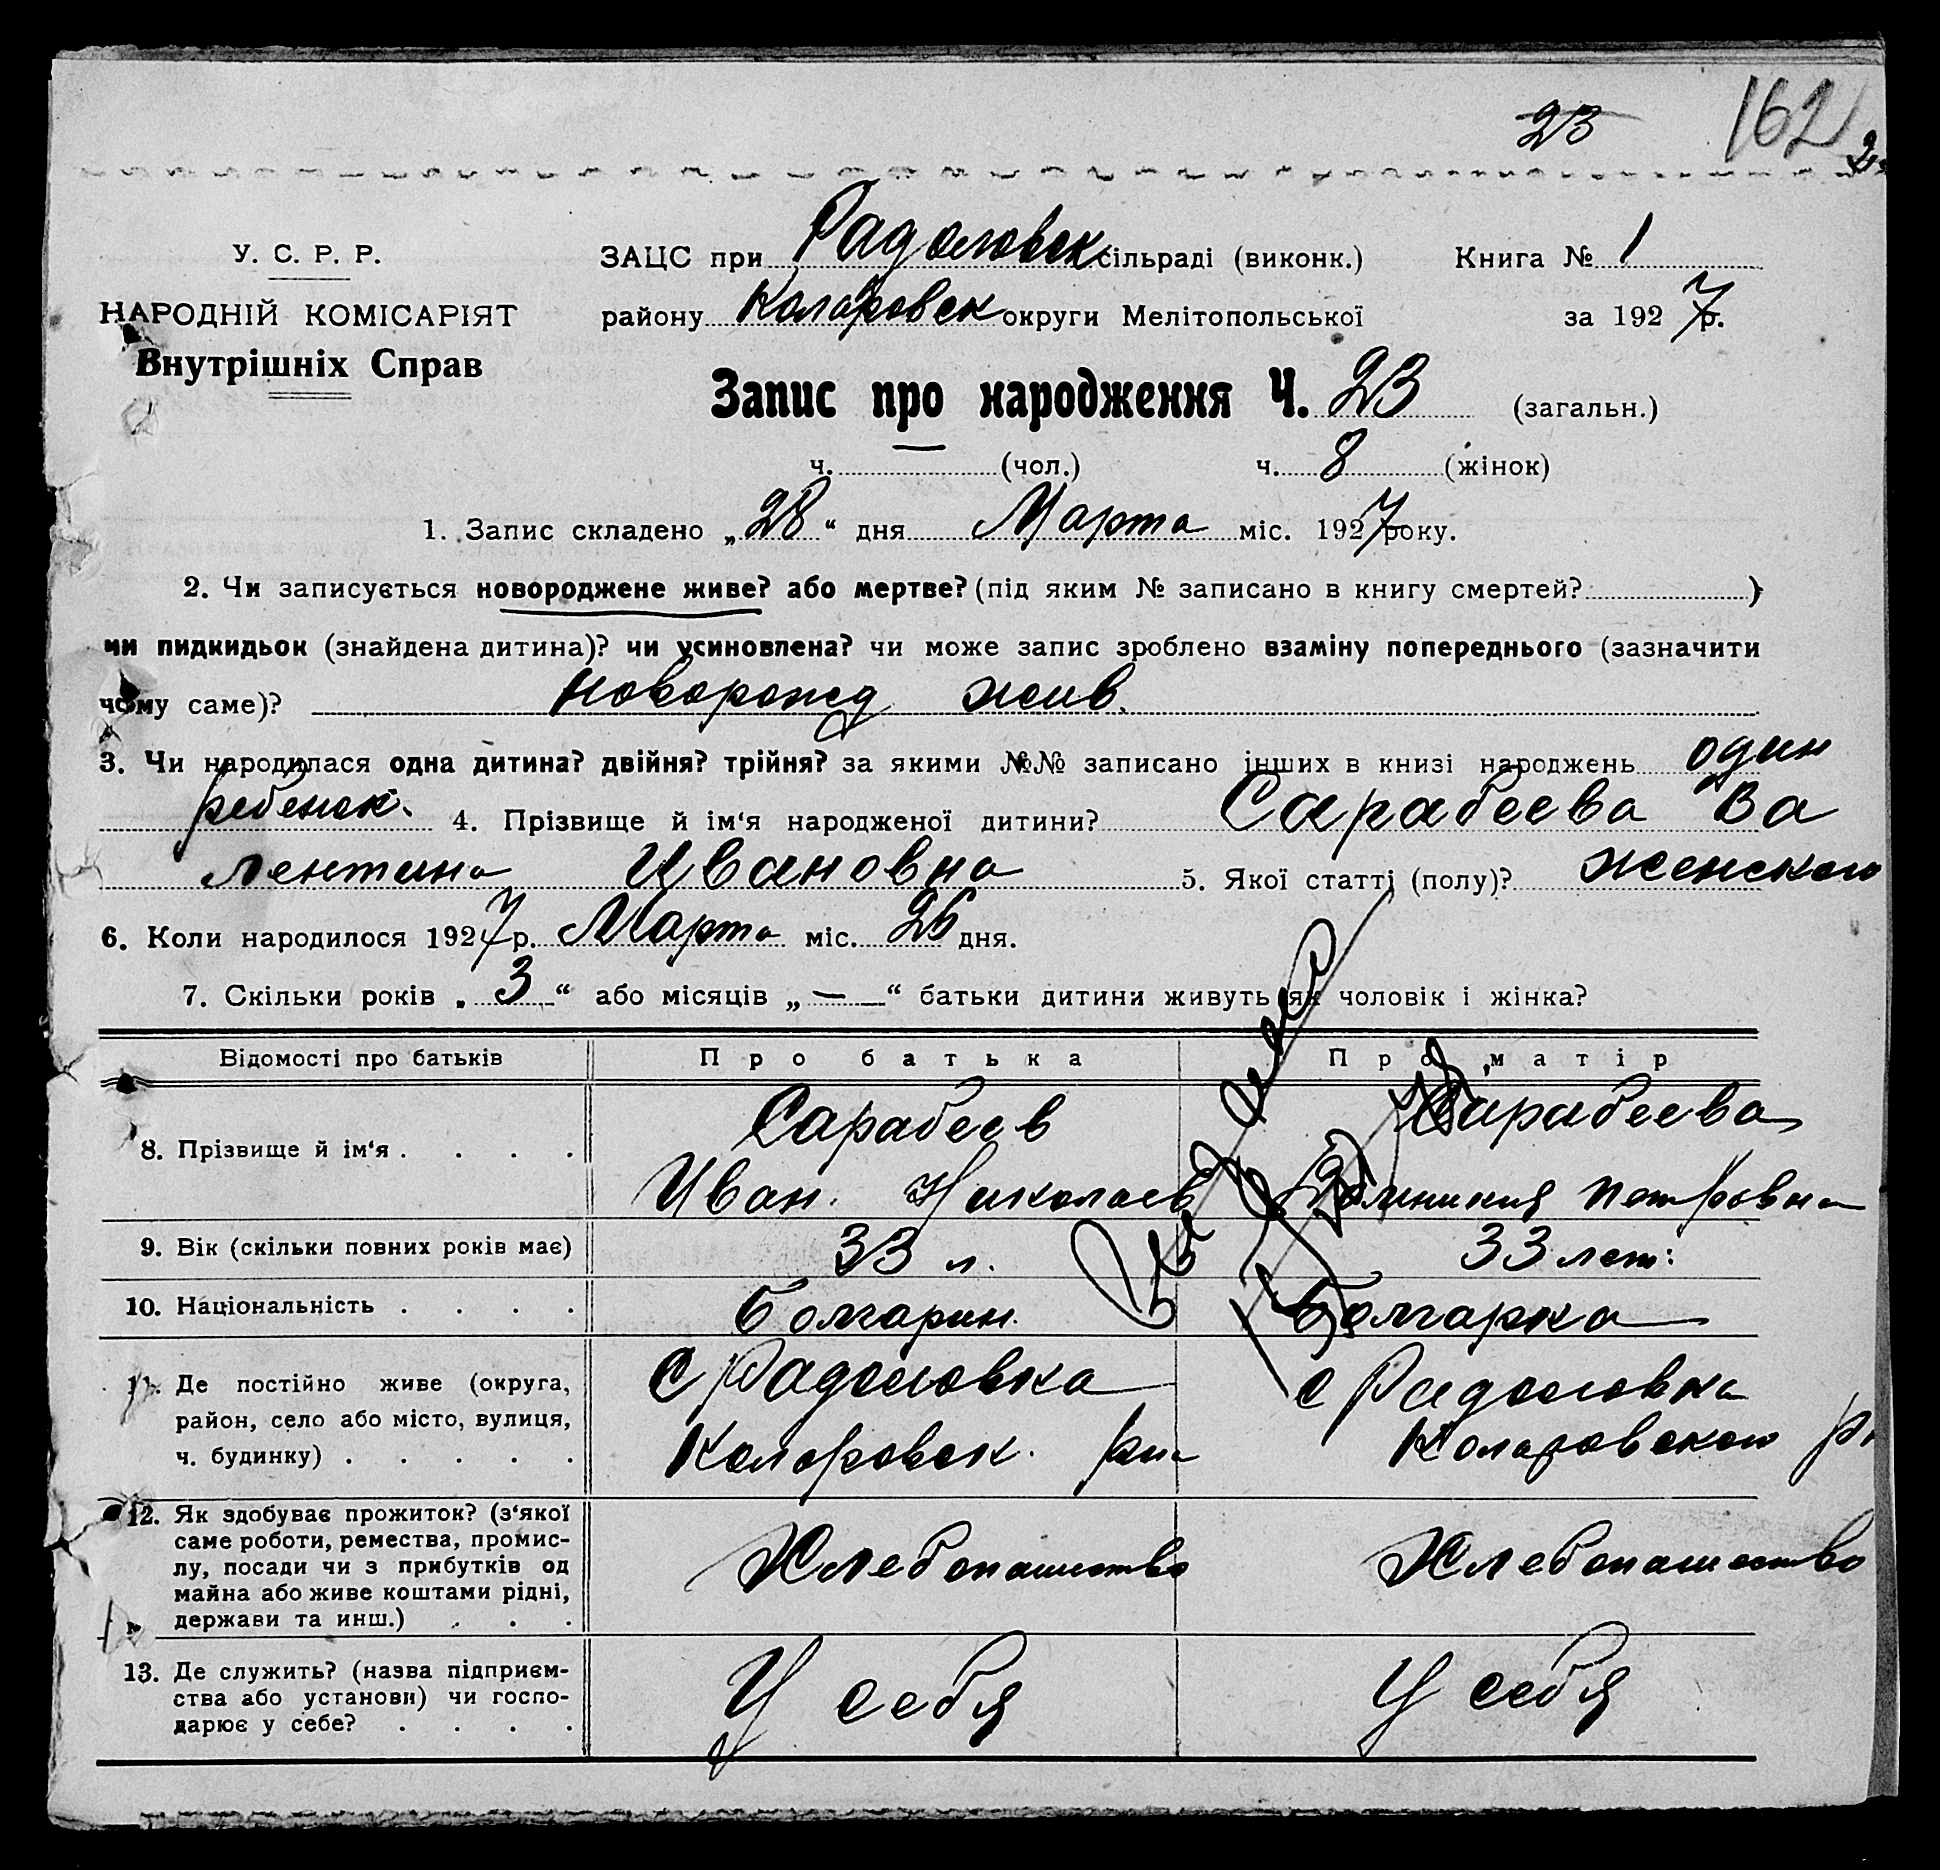 23 162
У. С. Р. Р. ЗАЦС при Радоловск сільраді (виконк.) Книга № 1
НАРОДНІЙ КОМІСАРІЯТ району Коларовск округи Мелітопольської за 1927 р.
Внутрішніх Справ
Запис про народження Ч. 23 (загальн.)
ч. — (чол.) ч. 8 (жінок)
1. Запис складено „28“ дня Марта міс. 1927 року.
2. Чи записується новороджене живе? або мертве? (під яким № записано в книгу смертей? )
чи пидкидьок (знайдена дитина)? чи усиновлена? чи може запис зроблено взаміну попереднього (зазначити
чому саме)? Новорожд жив.
3. Чи народилася одна дитина? двійня? трійня? за якими №№ записано інших в книзі народжень один
ребенок. 4. Прізвище й ім‘я народженої дитини? Сарабеева Ва
лентина Ивановна 5. Якої статті (полу)? Женского
6. Коли народилося 1927 р. Марта міс. 26 дня.
7. Скільки років „3“ або місяців „—“ батьки дитини живуть як чоловік і жінка?
Відомості про батьків Про батька Про матір
8. Прізвище й ім‘я . . . . Сарабеев Сарабеева
Иван. Николаев Петровна
9. Вік (скільки повних років має) 33 л. 33 лет:
10. Національність . . . . Болгарин. Болгарка
11. Де постійно живе (округа, С Радоловка с Радоловка
район, село або місто, вулиця, Коларовск. р-на Коларовского
ч. будинку) . . . . .
12. Як здобуває прожиток? (з‘якої
саме роботи, ремества, промис-
лу, посади чи з прибутків од Хлебопашество Хлебопашество
майна або живе коштами рідні,
держави та инш.) . . .
13. Де служить? (назва підприєм- У себя У себя
ства або установи) чи госпо-
дарює у себе? . . . .